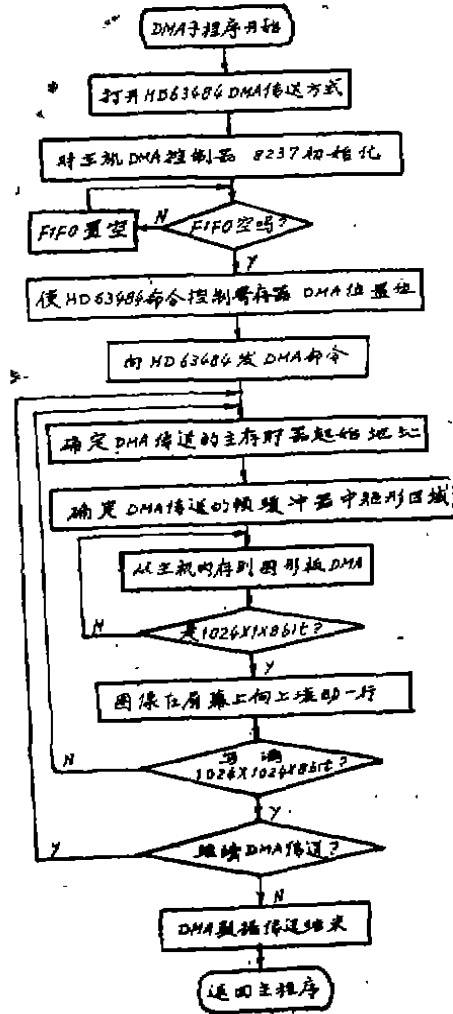 DMA子程序开始
打开HD63484DMA传送方式
对主机DMA控制器 8237初始化
FIFO置空
N
FIFO空吗?
Y
使HD63484命令控制寄存器DMA位置位
向HD63484发DMA命令
确定DMA传送的主存贮器起始地址
确定DMA传送的帧缓冲器中矩形区域
从主机内存到图形板DMA
N
是1024X1X8bit?
Y
图像在屏幕上向上滚动一行
N
写满
1024X1024X8bit?
Y
Y
继续DMA传送?
N
DMA数据传送结束
返回主程序